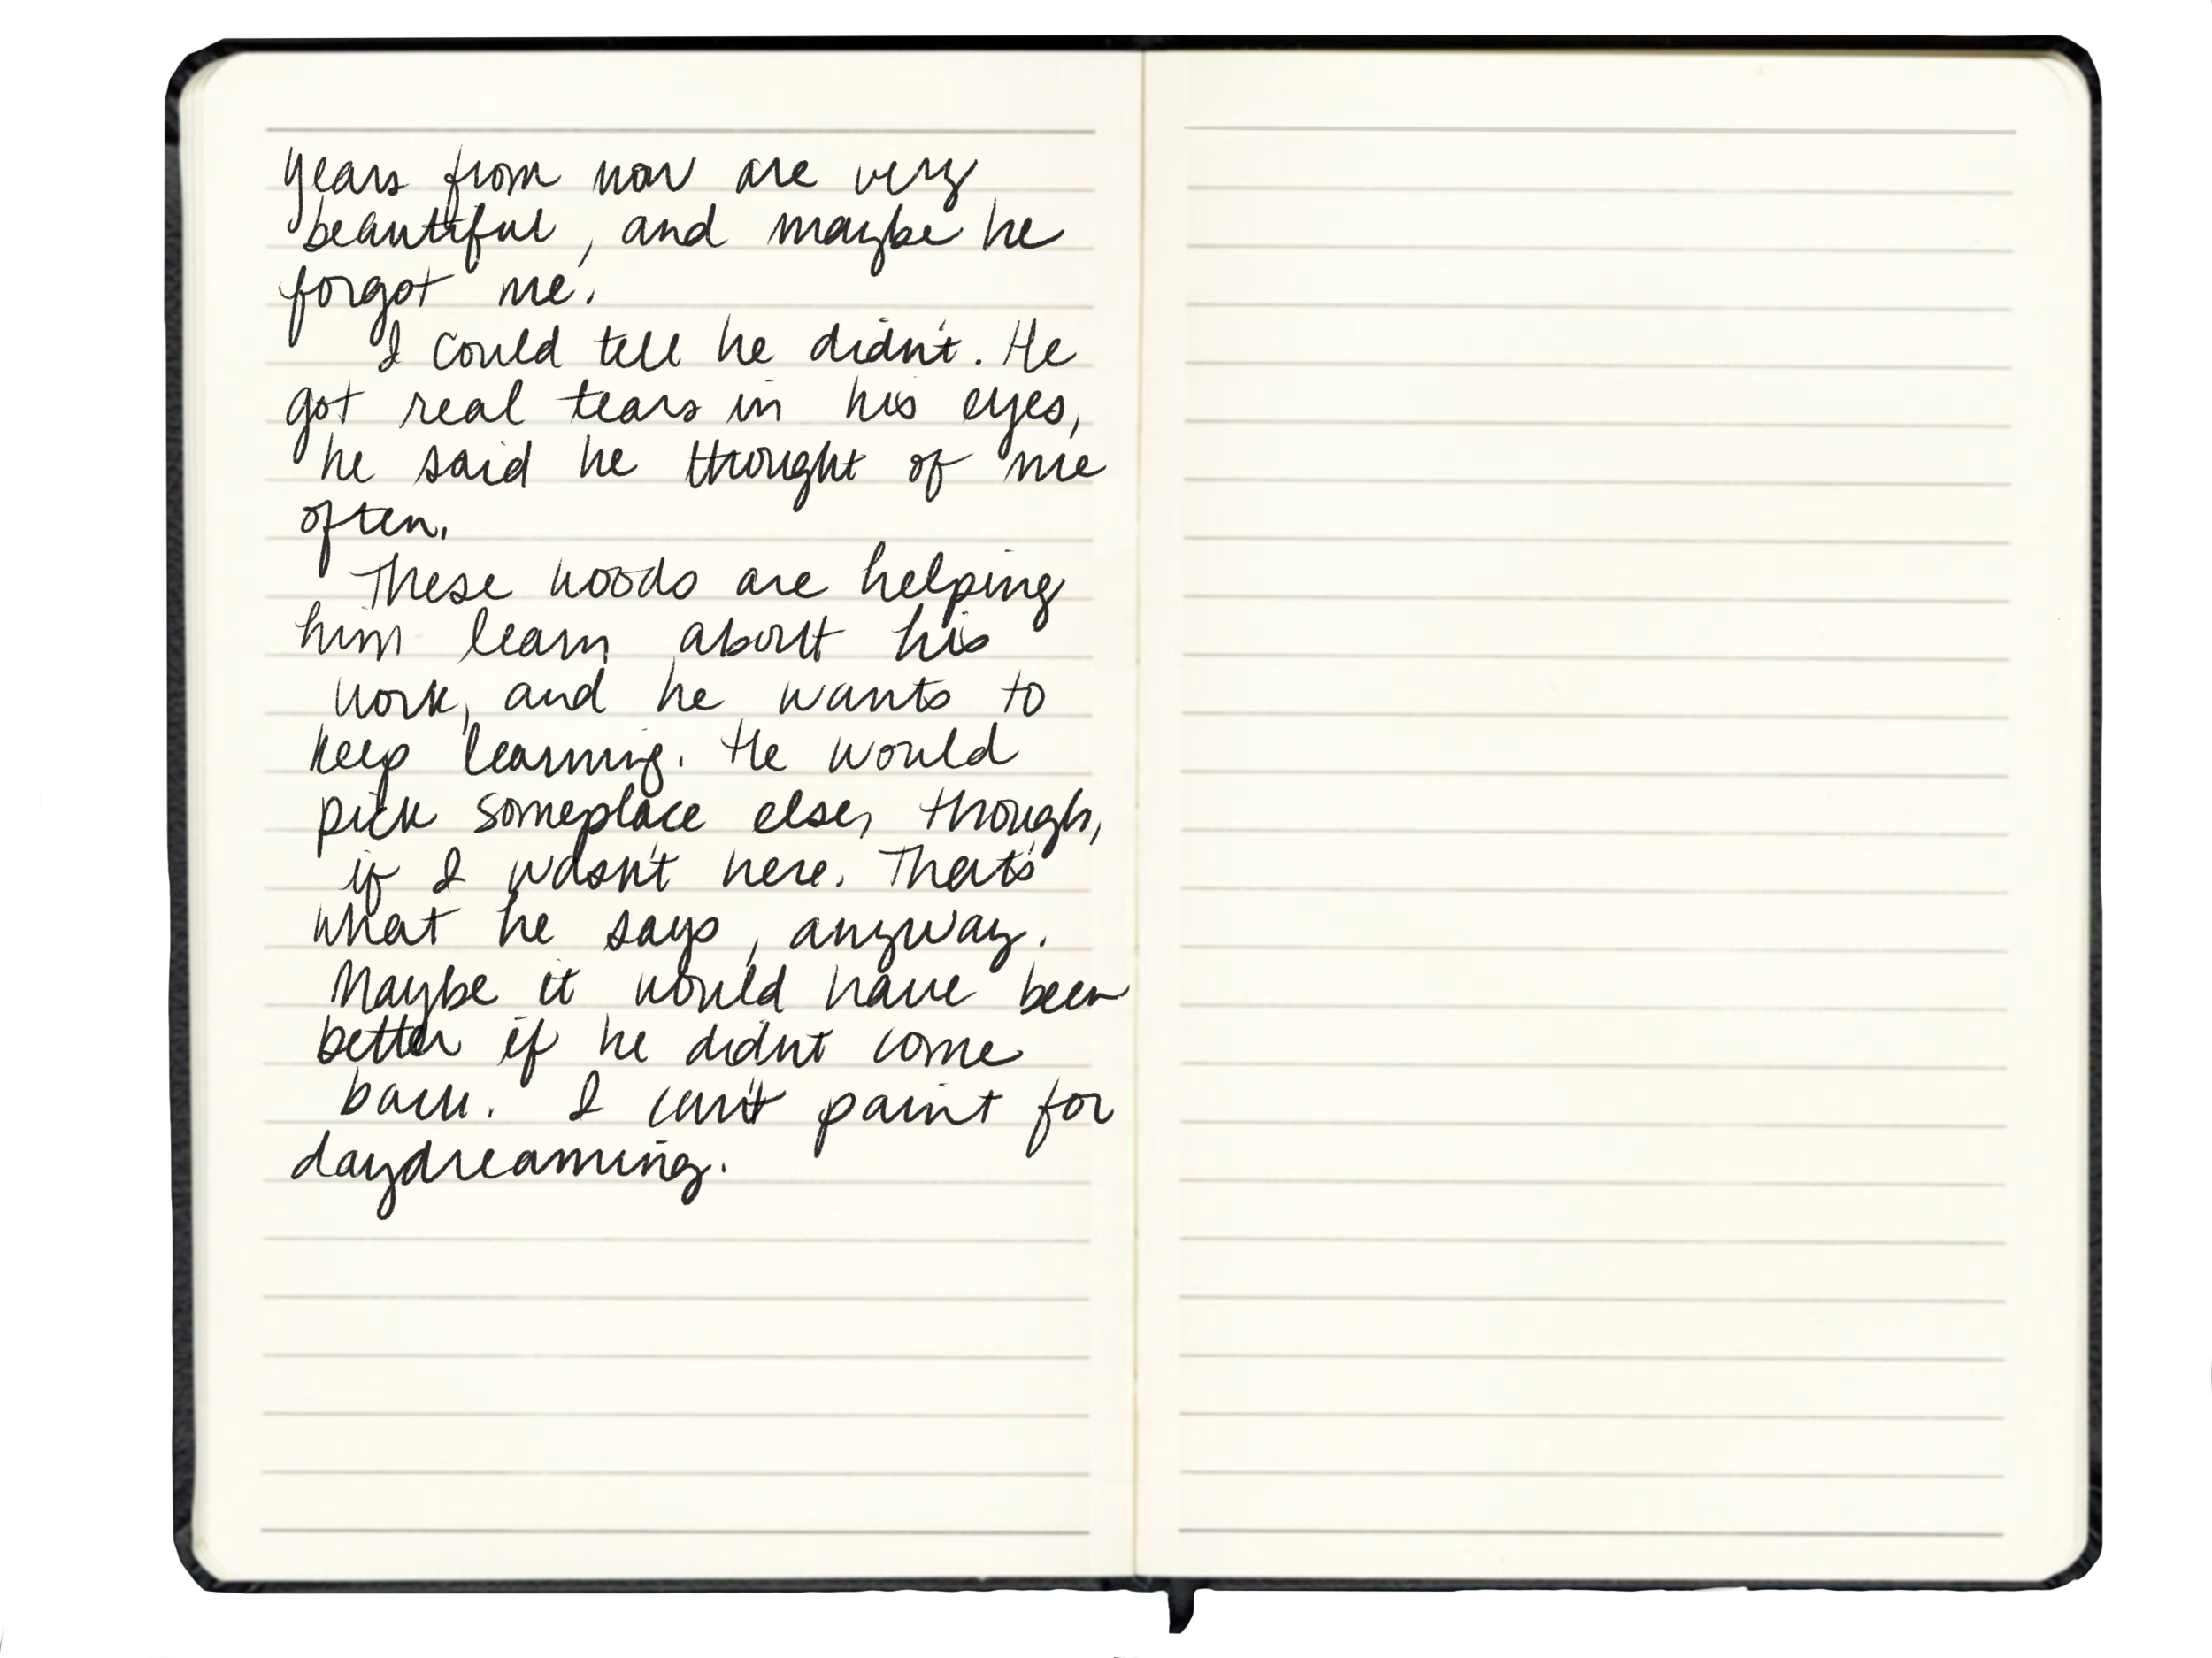 years from now are very
beautiful, and maybe he
forgot me.
I could tell he didn't. He
got real tears in his eyes,
he said he thought of me
often.
These woods are helping
him learn about his
work, and he wants to
keep learning. He would
pick someplace else, though,
if I wasn't here. That's
what he says, anyway.
Maybe it would have been
better if he didnt come
back. I can't paint for
daydreaming.